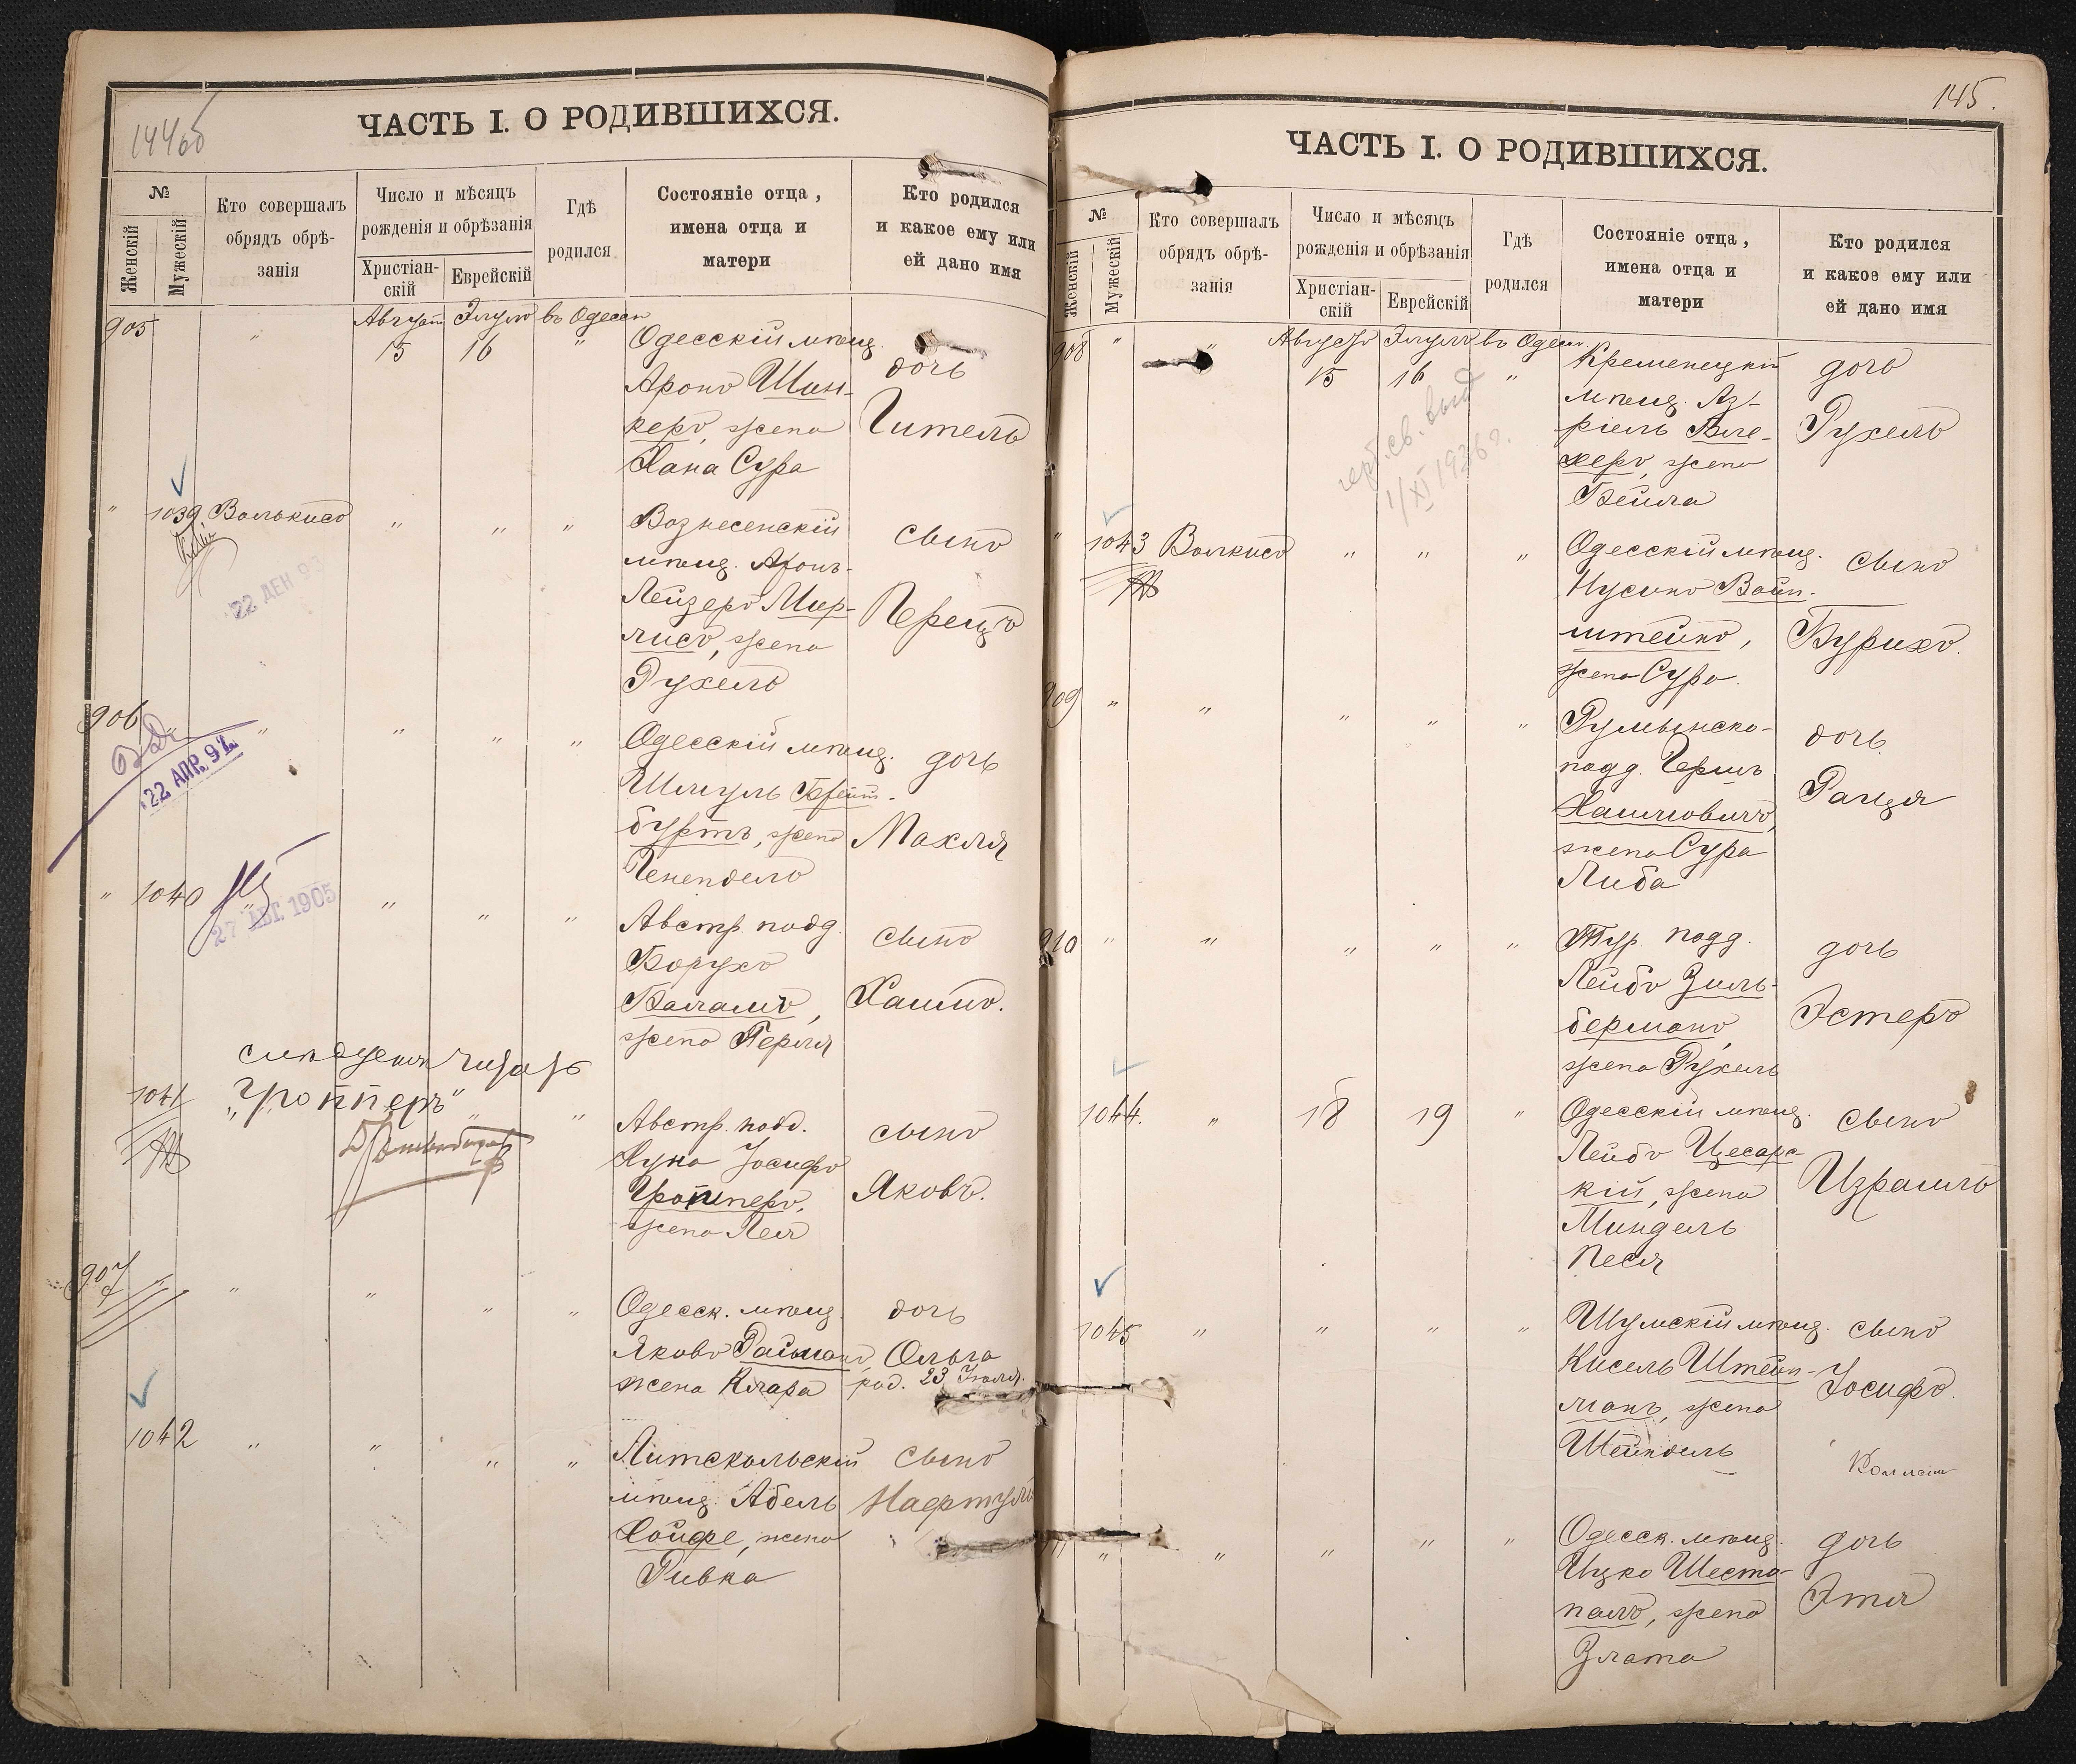 144об
ЧАСТЬ I. О РОДИВШИХСЯ.
№
Женскій
Мужескій
Кто совершалъ
обрядъ обрѣ-
занія
Число и мѣсяцъ
рожденія и обрѣзанія
Христіан-
скій
Еврейскій
Гдѣ
родился
Состояніе отца,
имена отца и
матери
Кто родился
и какое ему или
ей дано имя
905 " Августъ Элулъ въ Одессѣ
15 16 " Одесскій мѣщ. дочь
Аронъ Шин-
керъ, жена Гитель
Хана Сура
" 1039. Волькисъ " " " Вознесенскій сынъ
мѣщ. Аронъ-
Лейзеръ Мир- Перецъ
лисъ, жена
Рухель
22 ДЕК 93
906 " " " " Одесскій мѣщ. дочь
22 АПР. 91
Шмуль Брейт-
буртъ, жена Махля
Ченендель
" 1040 " " " " Австр. подд. сынъ
27 АВГ. 1905
Борухъ
Балалъ, Хаимъ.
жена Перля
слѣдуетъ читать
1041 „Гропперъ" " " Австр. подд. сынъ
Хуна Іосифъ
Гропперъ, Яковъ.
жена Лея
907 " " " " Одесск. мѣщ. дочь
Яковъ Райманъ, Ольга
жена Клара род. 23 Іюля.
1042 " " " " Литскольскій сынъ
мѣщ. Абель Нафтулъ
Хойфе, жена
Ривка
145.
ЧАСТЬ I. О РОДИВШИХСЯ.
№
Женскій
Мужескій
Кто совершалъ
обрядъ обрѣ-
занія
Число и мѣсяцъ
рожденія и обрѣзанія
Христіан-
скій
Еврейскій
Гдѣ
родился
Состояніе отца,
имена отца и
матери
Кто родился
и какое ему или
ей дано имя
908 " " Августъ Элулъ въ Одессѣ
15 16 " Кременецкій дочь
мѣщ. Аз-
ріель Вле- Рухель
херъ, жена
Бейла
св. выд
1/XI 1936 г.
" 1043 Волкисъ " " " Одесскій мѣщ. сынъ
Нусинъ Вайн-
штейнъ, Бурихъ.
жена Сура.
909 " " " " " Румынско- дочь
подд. Гершъ
Хаимовичъ, Ранця
жена Сура
Либа
910 " " " " " Тур. подд. дочь
Лейбъ Зиль-
берманъ, Эстеръ
жена Рухель
1044. " 18 19 " Одесскій мѣщ. сынъ
Лейбъ Цесарс-
кій, жена Израиль
Миндель
Песя
1045 " " " " Шумскій мѣщ. сынъ
Кисель Штейн-
манъ, жена Іосифъ.
Шейндель
" " " " " Одесск. мѣщ. дочь
Ицко Шесто-
палъ, жена Этя
Злата